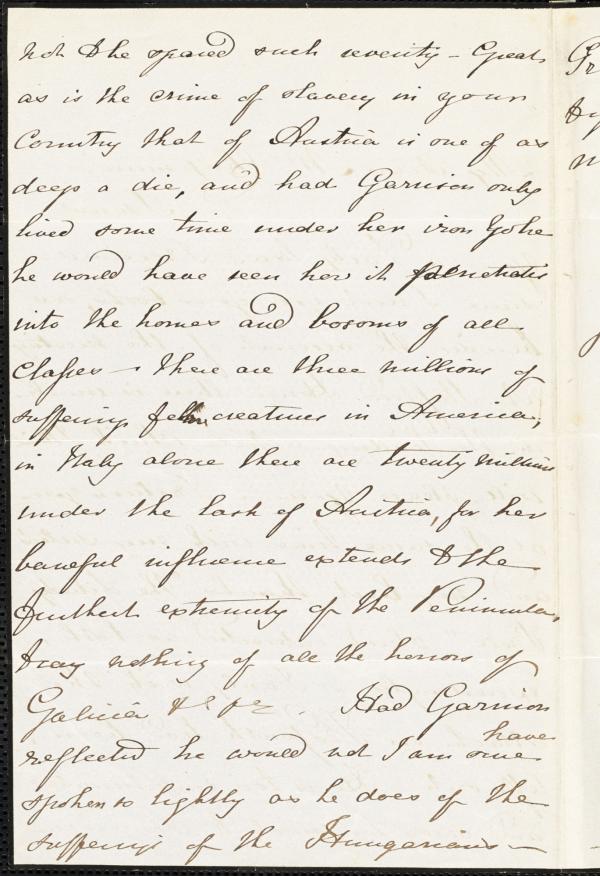 not to be spared such severity – Great
as is the crime of slavery in your
Country that of Austria is one of as
deep a die, and had Garrison only
lived some time under her iron Yoke
he would have seen how it penetrates
into the homes and bosoms of all
Classes – there are three millions of
suffering fellow creatures in America,
in Italy alone there are twenty millions
under the lash of Austria, for her
baneful influence extends to the
furthest extremity of the Peninsula,
to say nothing of all the horrors of
Galicia &c &c. Had Garrison
have
reflected he would not I am sure
spoken so lightly as he does of the
sufferings of the Hungarians –
Gr